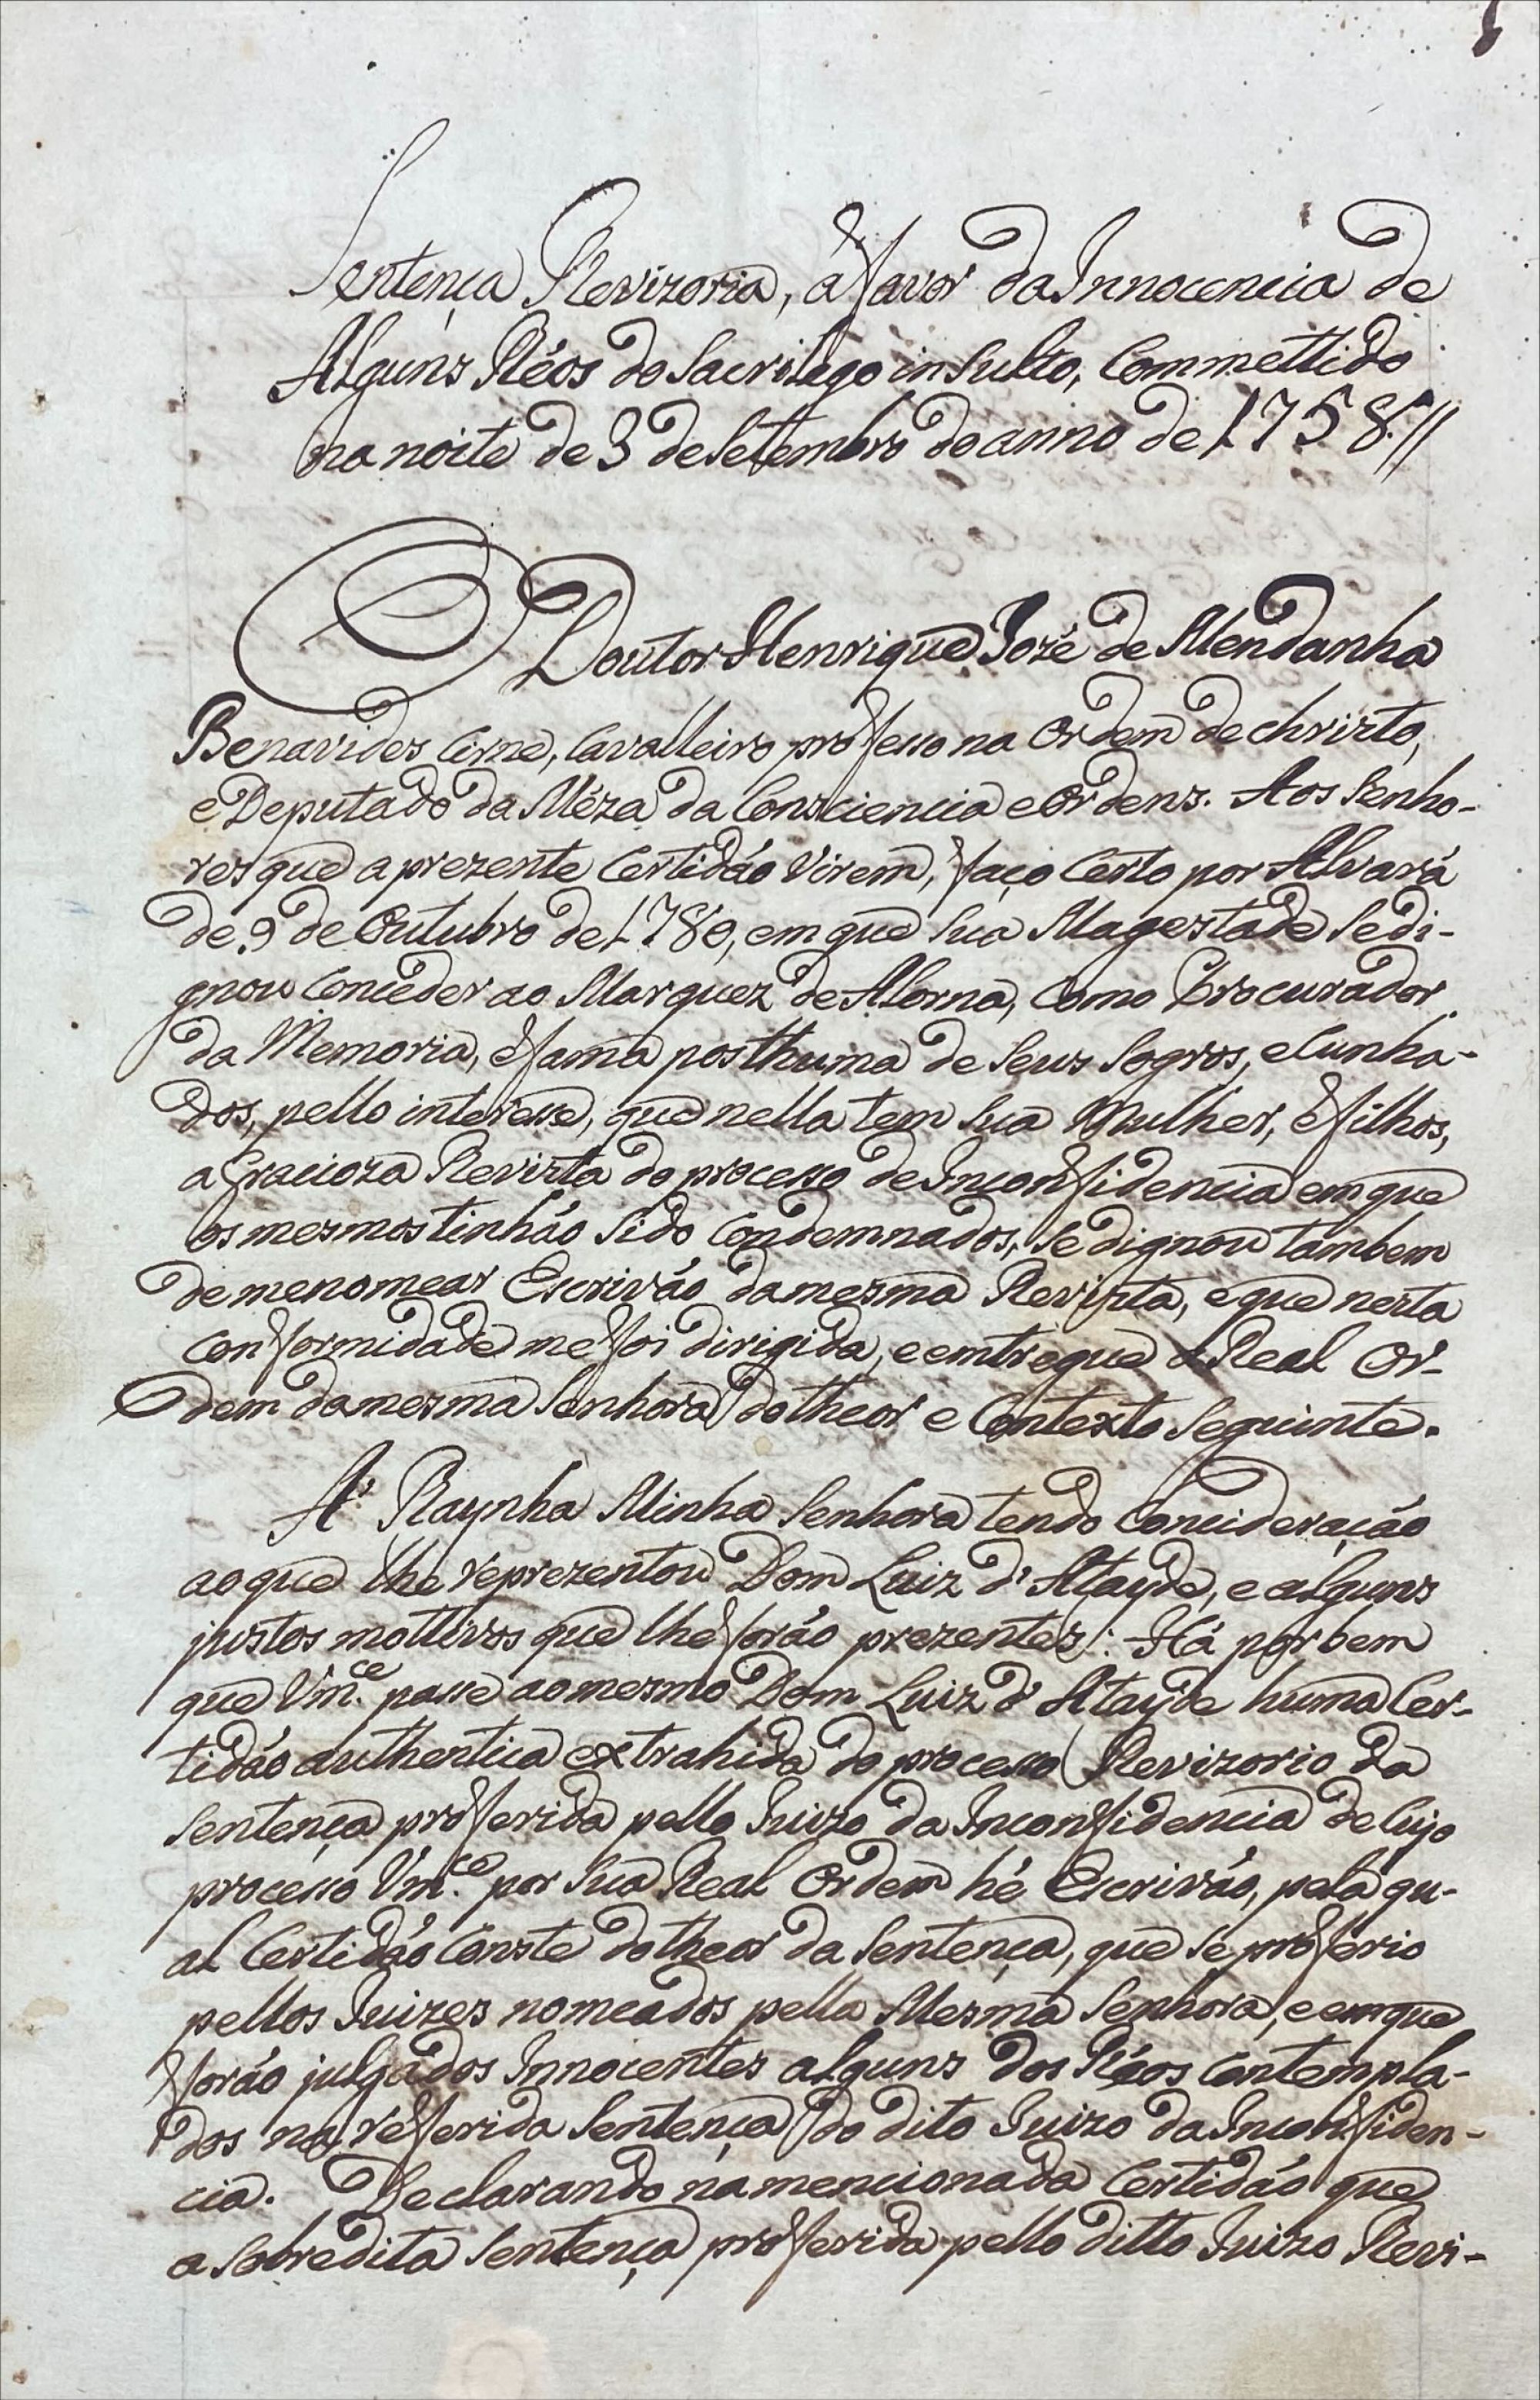 Sentença Revizoria, a favor da Innocencia de
Alguns Réos do Sacrilego insulto, Commettido
na noite de 3 de Setembro do anno de 1758.//
O Doutor Henrique Jozé de Mendanha
Benavides Cirne, Cavalleiro professo na Ordem de Christo,
e Deputado da Méza da Consciencia e Ordens. Aos Senho-
res que a prezente Certidáo virem, faço Certo por Alvará
de 9 de Outubro de 1780, em que Sua Magestade Se di-
gnou Conceder ao Marquez de Alorna, Como Procurador
da Memoria, e fama posthuma de Seus Sogros, e Cunha-
dos, pello interesse, que nella tem Sua Mulher, e filhos,
a Gracioza Revista do processo de Inconfidencia em que
os mesmos tinháo Sido Condemnados, Se dignou tambem
de me nomear Escriváo da mesma Revista, e que nesta
conformidade me foi dirigida, e emtregue a Real Or-
dem da mesma Senhora do theor e Contexto Seguinte.
A' Raynha Minha Senhora tendo Concideraçáo
ao que lhe reprezentou Dom Luiz d' Atayde, e alguns
justos mottivos que lhe foráo prezentes: Há por bem
que Vm.ce passe ao mesmo Dom Luiz d' Atayde huma Cer-
tidáo authentica extrahida do processo Revizorio da
Sentença profferida pello Juizo da Inconfidencia de Cujo
processo Vm.ce por Sua Real Ordem hé Escriváo, pela qu-
al Certidáo Conste do theor da Sentença, que Se profferio
pellos Juizes nomeados pella Mesma Senhora, e em que
foráo julgados Innocentes alguns dos Réos Contempla-
dos na refferida Sentença do dito Juizo da Inconfiden-
cia. Declarando na mencionada Certidáo que
a Sobredita Sentença profferida pello ditto Juizo Revi-